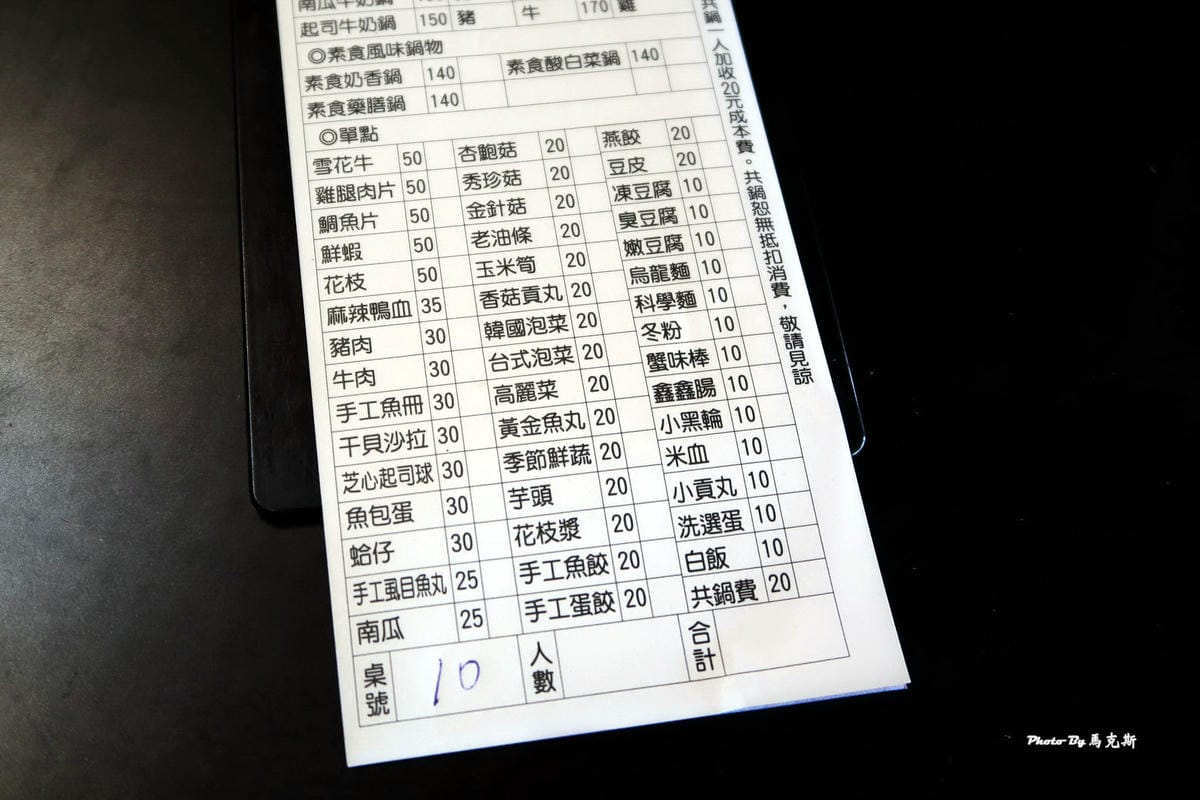 南瓜牛奶鍋
起司牛奶鍋 150 豬 牛 170 雞
◎素食風味鍋物
素食奶香鍋 140 素食酸白菜鍋 140
素食藥膳鍋 140
◎單點
雪花牛 50 杏鮑菇 20 燕餃 20
雞腿肉片 50 秀珍菇 20 豆皮 20
鯛魚片 50 金針菇 20 凍豆腐 10
鮮蝦 50 老油條 20 臭豆腐 10
花枝 50 玉米筍 20 嫩豆腐 10
麻辣鴨血 35 香菇貢丸 20 烏龍麵 10
豬肉 30 韓國泡菜 20 科學麵 10
牛肉 30 台式泡菜 20 冬粉 10
手工魚冊 30 高麗菜 20 蟹味棒 10
干貝沙拉 30 黃金魚丸 20 鑫鑫腸 10
芝心起司球 30 季節鮮蔬 20 小黑輪 10
魚包蛋 30 芋頭 20 米血 10
蛤仔 30 花枝漿 20 小貢丸 10
手工虱目魚丸 25 手工魚餃 20 洗選蛋 10
南瓜 25 手工蛋餃 20 白飯 10
共鍋費 20
桌號 10 人數 合計
共鍋一人加收20元成本費。共鍋恕無抵扣消費，敬請見諒
Photo By 馬克斯